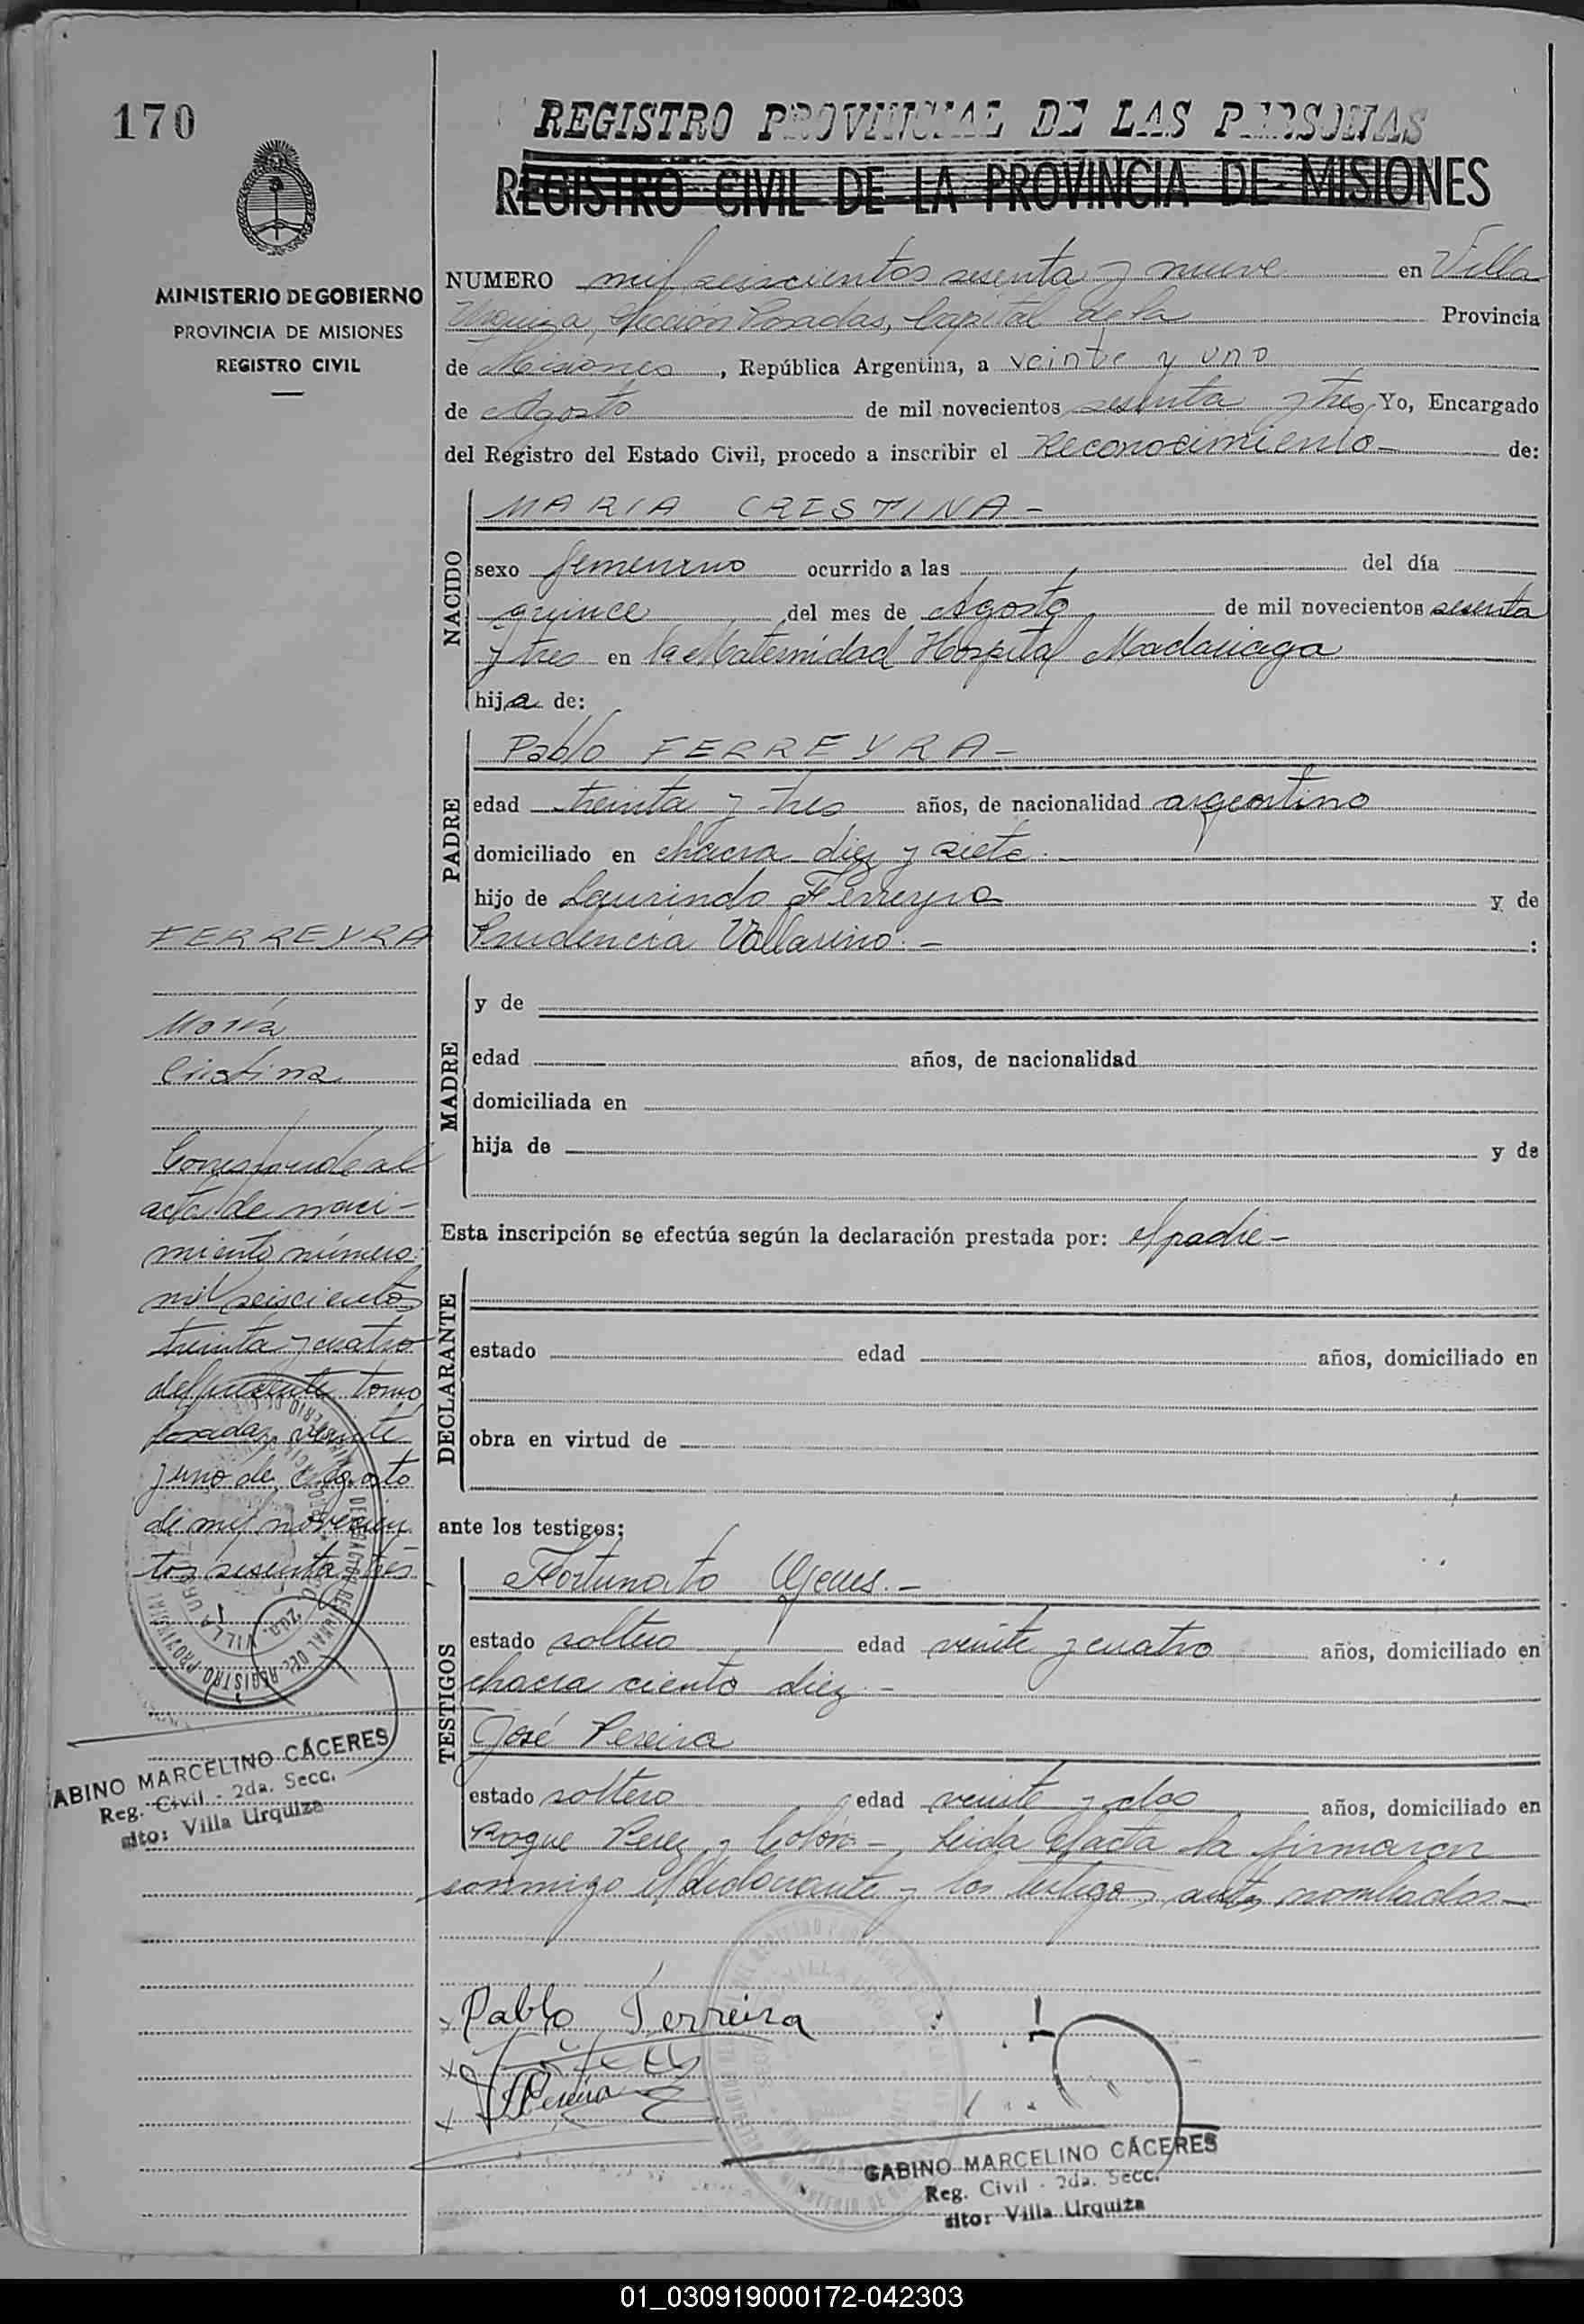 170
REGISTRO PROVINCIAL DE LAS PERSONAS
REGISTRO CIVIL DE LA PROVINCIA DE MISIONES
MINISTERIO DE GOBIERNO
PROVINCIA DE MISIONES
REGISTRO CIVIL
NUMERO mil seiscientos sesenta y nueve en Villa
Urquiza, Sección Posadas, Capital de la Provincia
de Misiones, República Argentina, a veinte y uno
de Agosto de mil novecientos sesenta y tres Yo, Encargado
del Registro del Estado Civil, procedo a inscribir el Reconocimiento de:
NACIDO
MARIA CRISTINA -
sexo femenino ocurrido a las del día
quince del mes de Agosto de mil novecientos sesenta
y tres en la Maternidad Hospital Madariaga
hija de:
PADRE
Pablo FERREYRA -
edad treinta y tres años, de nacionalidad argentino
domiciliado en chacra diez y siete. -
hijo de Laurindo Ferreyra y de
Prudencia Vallarino. - :
MADRE
y de
edad años, de nacionalidad
domiciliada en
hija de y de
Esta inscripción se efectúa según la declaración prestada por: el padre -
DECLARANTE
estado edad años, domiciliado en
obra en virtud de
ante los testigos:
TESTIGOS
Fortunato -
estado soltero edad veinte y cuatro años, domiciliado en
chacra ciento diez. -
José Pereira
estado soltero edad veinte y dos años, domiciliado en
Roque Perez y Colón - Leida el acta la firmaron
conmigo el declarante y los testigos antes nombrados -
Pablo Ferreira
JPereira
GABINO MARCELINO CÁCERES
Reg. Civil - 2da. Secc.
sito: Villa Urquiza
FERREYRA
María
Cristina
Corresponde al
acta de naci-
miento número
mil seiscientos
treinta y cuatro
del presente tomo
Posadas, veinte
y uno de Agosto
de mil novecien
tos sesenta y tres
ABINO MARCELINO CÁCERES
Reg. Civil - 2da. Secc.
sito: Villa Urquiza
01_030919000172-042303